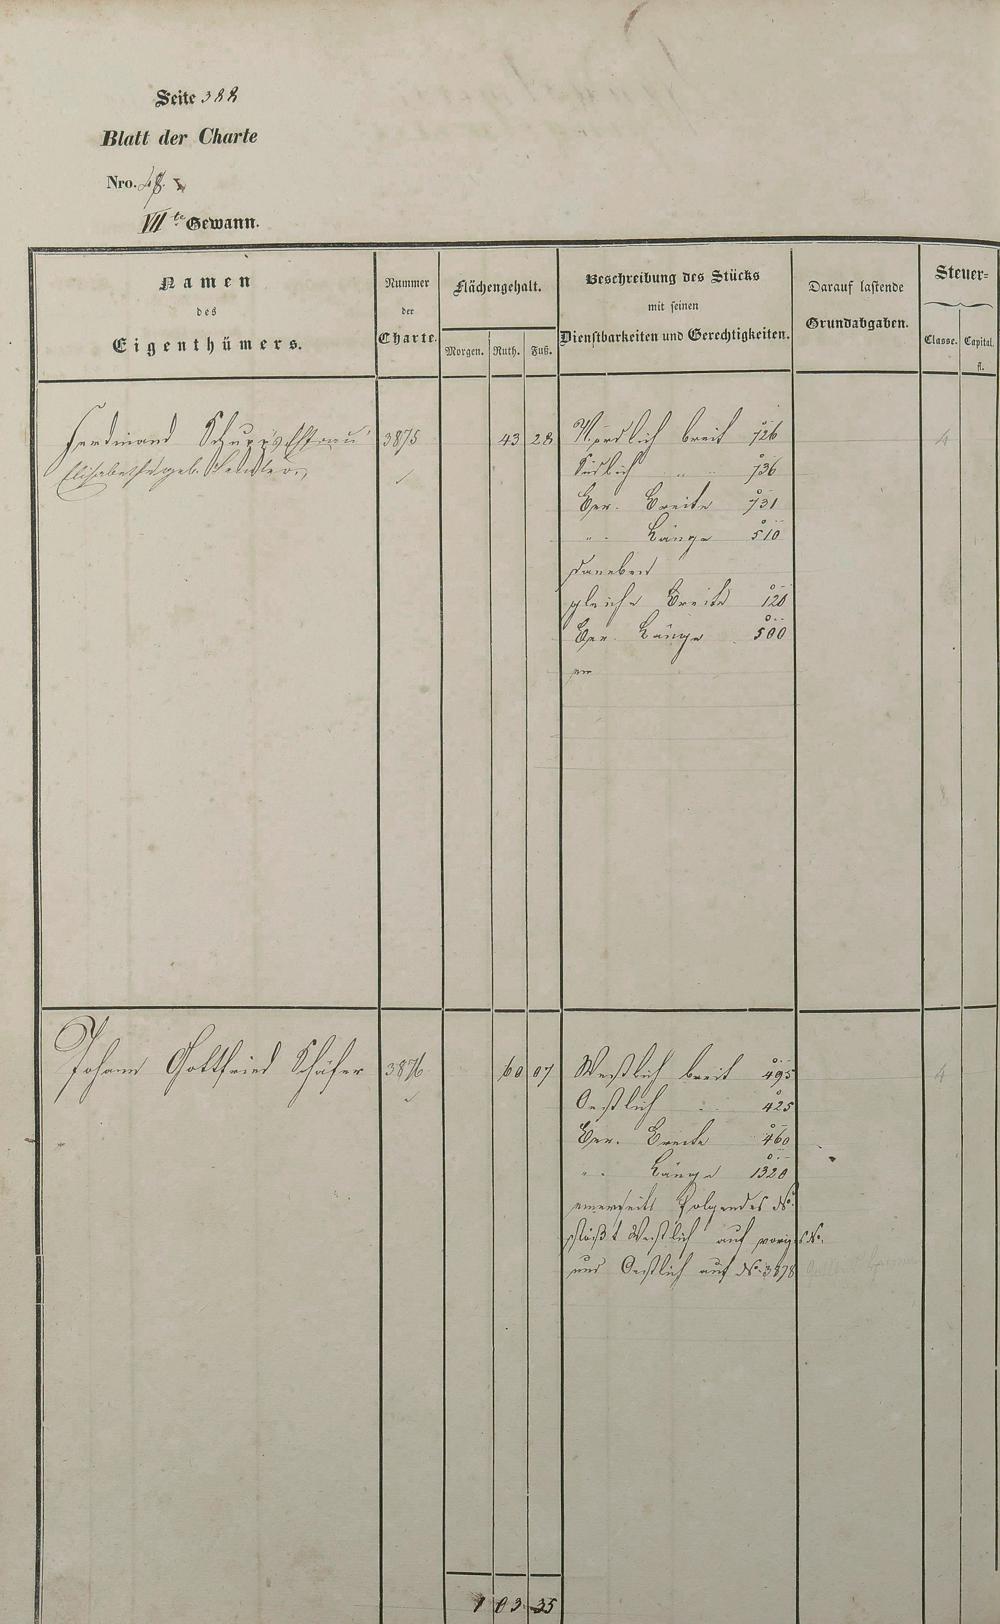 Seite 388
Blatt der Charte
Nro. 48.
VII te Gewann.
Namen
des
Eigenthümers.
Nummer
der
Charte.
Flächengehalt.
Morgen. Ruth. Fuß.
Beschreibung des Stücks
mit seinen
Dienstbarkeiten und Gerechtigkeiten.
Darauf lastende
Grundabgaben.
Steuer=
Classe. Capital.
fl.
Ferdinand 3875 43 28 Nördlich breit 726 4
Elisabetha geb. Südlich " " 736
Ber. Breite 731
" Länge 510
daneben
gleiche Breite 120
Ber. Länge 500
Johann Gottfried Schäfer 3876 60 07 Westlich breit 495 4
Oestlich " 425
Ber. Breite 460
" Länge 1320
einerseits folgendes No.
stößt Westlich auf voriges No.
und Oestlich auf No. 3878
1 03 35